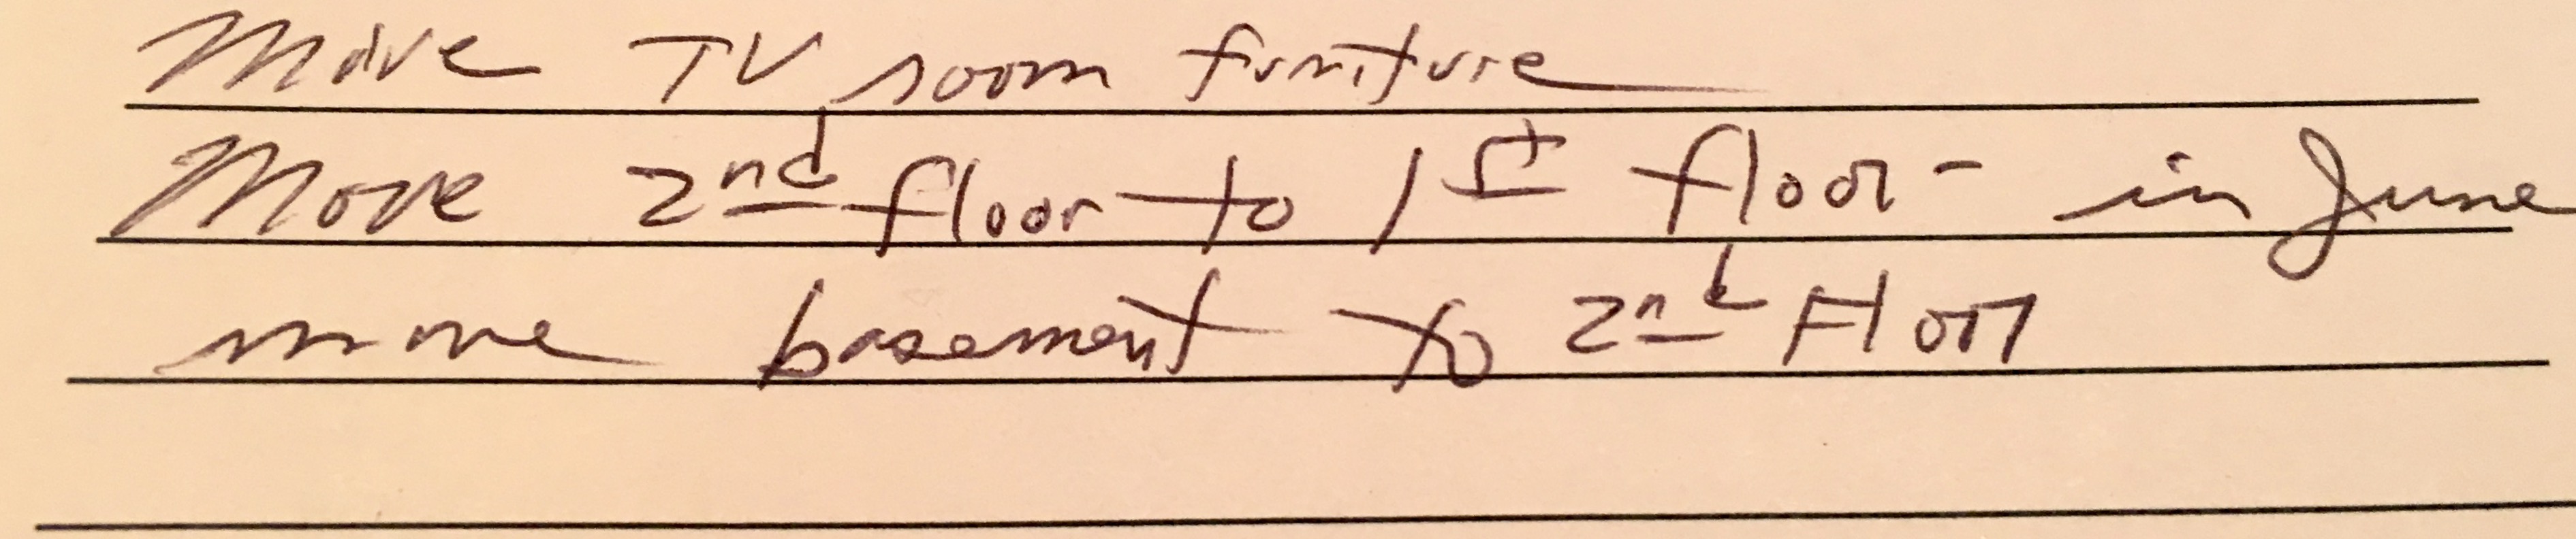 Move TV room furniture
Move 2nd floor to 1st floor - in June
move basement to 2nd Floor